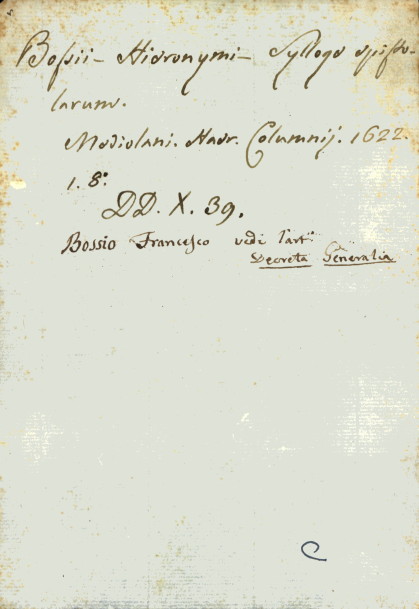 Bossii - Hieronymi - Sylloge episto-
larum.
Mediolani. Hadr. Columnij. 1622.
1. 8.°
DD. X. 39.
Bossio Francesco vedi l'art.
Decreta Generalia
C